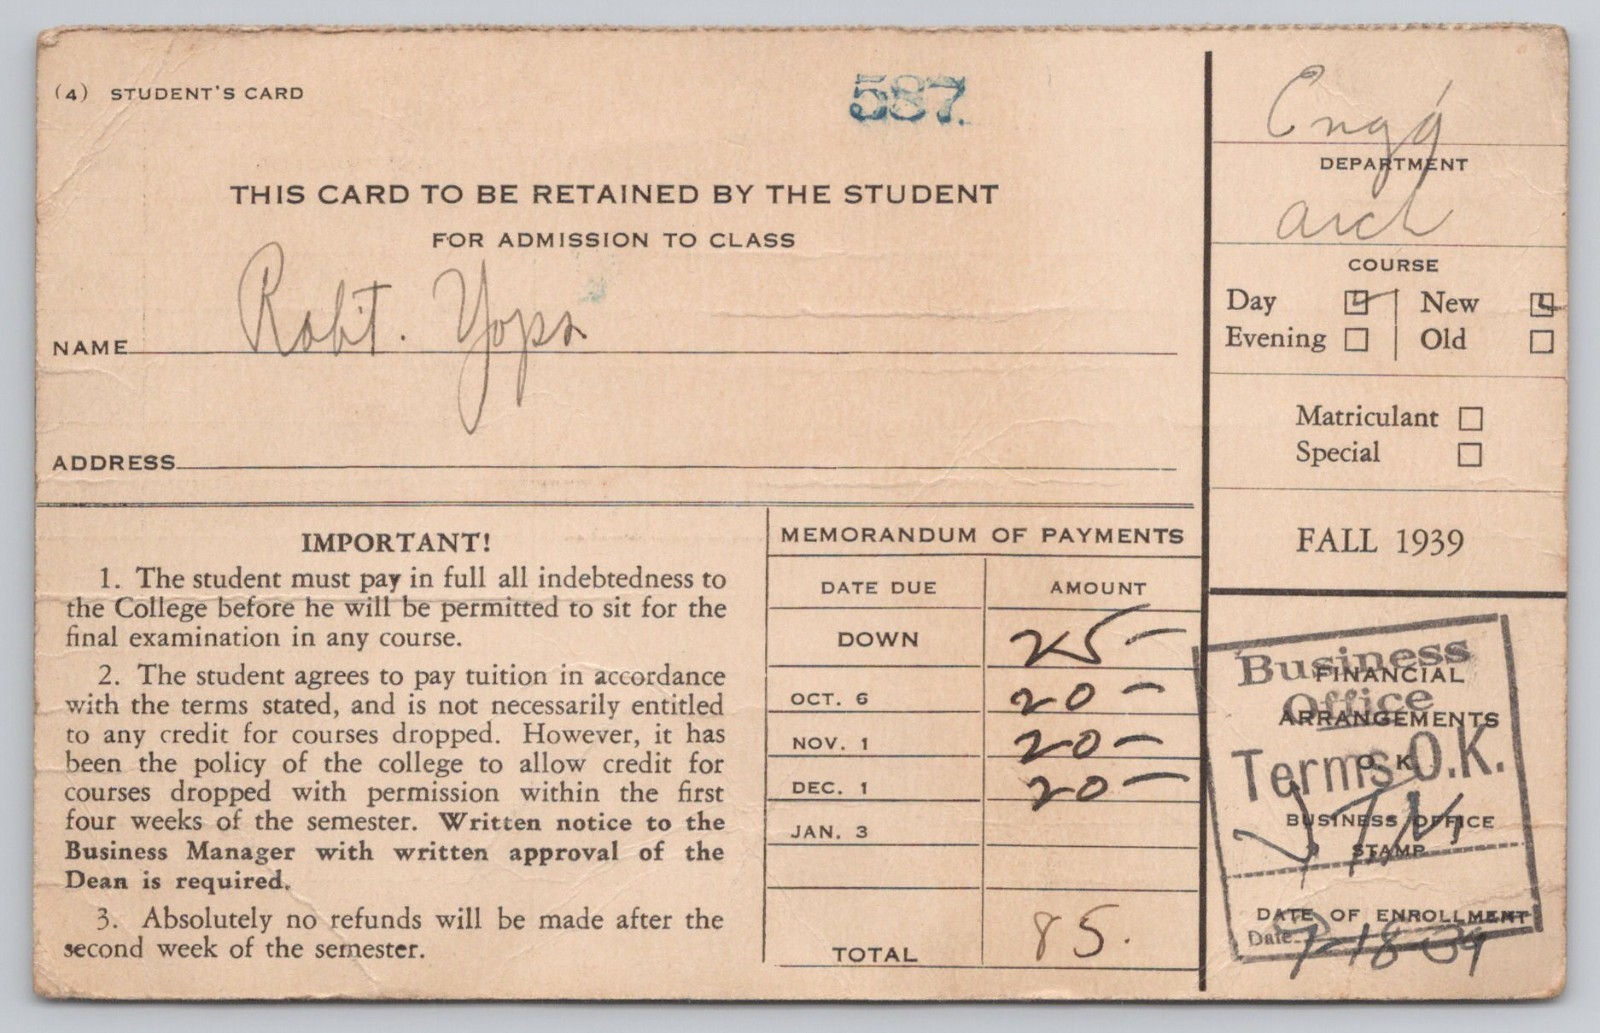 (4) STUDENT'S CARD
587.
THIS CARD TO BE RETAINED BY THE STUDENT
FOR ADMISSION TO CLASS
NAME Robt. Yopa
ADDRESS
IMPORTANT!
1. The student must pay in full all indebtedness to
the College before he will be permitted to sit for the
final examination in any course.
2. The student agrees to pay tuition in accordance
with the terms stated, and is not necessarily entitled
to any credit for courses dropped. However, it has
been the policy of the college to allow credit for
courses dropped with permission within the first
four weeks of the semester. Written notice to the
Business Manager with written approval of the
Dean is required.
3. Absolutely no refunds will be made after the
second week of the semester.
MEMORANDUM OF PAYMENTS
DATE DUE AMOUNT
DOWN 25 –
OCT. 6 20 –
NOV. 1 20 –
DEC. 1 20 –
JAN. 3
TOTAL 85.
Eng'g
DEPARTMENT
arch
COURSE
Day New
Evening Old
Matriculant
Special
FALL 1939
FINANCIAL
ARRANGEMENTS
O K
BUSINESS OFFICE
STAMP
DATE OF ENROLLMENT
Business
Office
Terms O.K.
Date 9-18-39